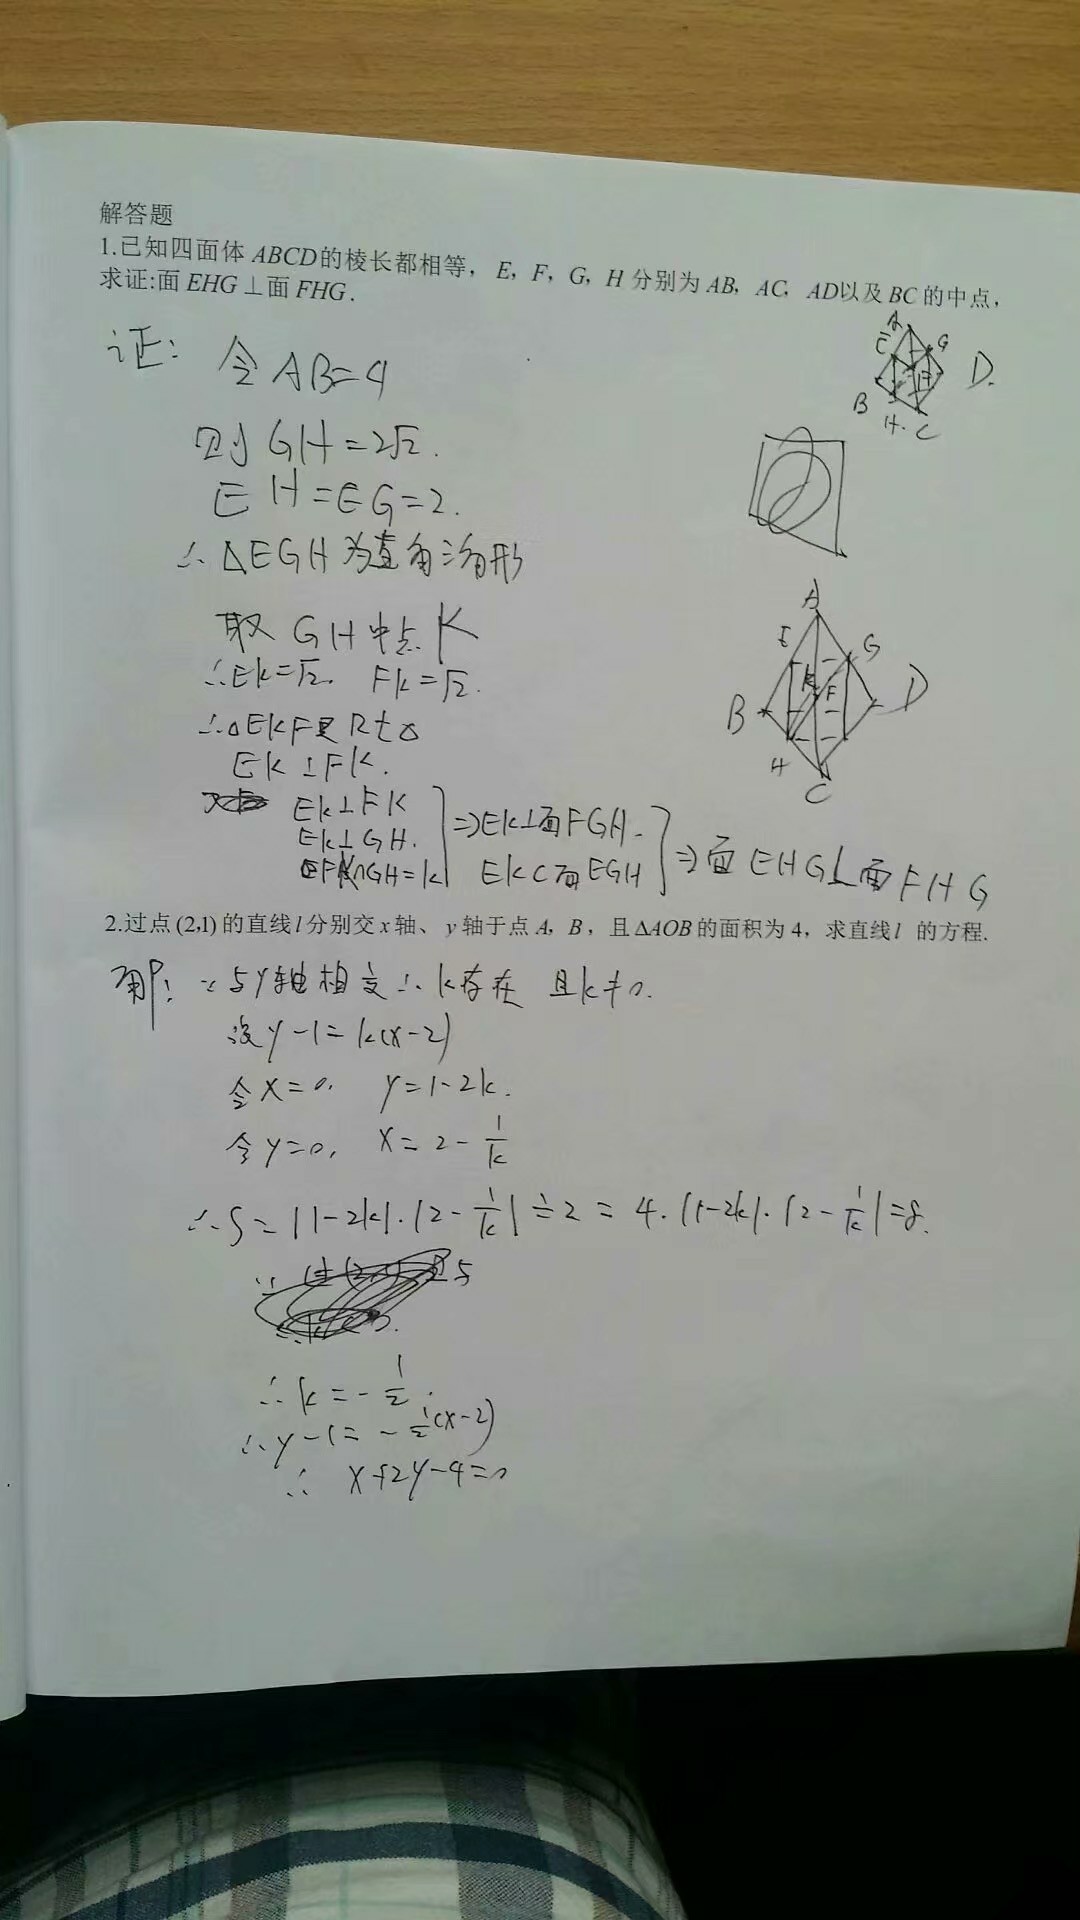 解答题
1.已知四面体 ABCD的棱长都相等，E，F，G，H 分别为 AB，AC，AD以及 BC 的中点，
求证:面 EHG⊥面 FHG.
证: 令 AB=4
则 GH=2√2.
EH=EG=2.
∴ △EGH 为直角三角形
取 GH 中点 K
∴EK=√2. FK=√2.
∴△EKF是 Rt△
EK⊥FK.
EK⊥FK
EK⊥GH.
FK∩GH=K
⇒EK⊥面 FGH.
EK⊂面 EGH
⇒面 EHG⊥面 FHG
A
E
G
D.
B
F
H.
C
A
E
G
K
F
B
D
H
C
2.过点 (2,1) 的直线 l 分别交 x 轴、 y 轴于点 A，B，且 ΔAOB 的面积为 4，求直线 l 的方程.
解: ∵与y轴相交∴k存在 且k≠0.
设 y-1=k(x-2)
令 x=0, y=1-2k.
令 y=0, x=2-1/k
∴S=|1-2k|·|2-1/k|÷2=4. |1-2k|·|2-1/k|=8.
∴k=-1/2.
∴y-1=-1/2(x-2)
∴ x+2y-4=0